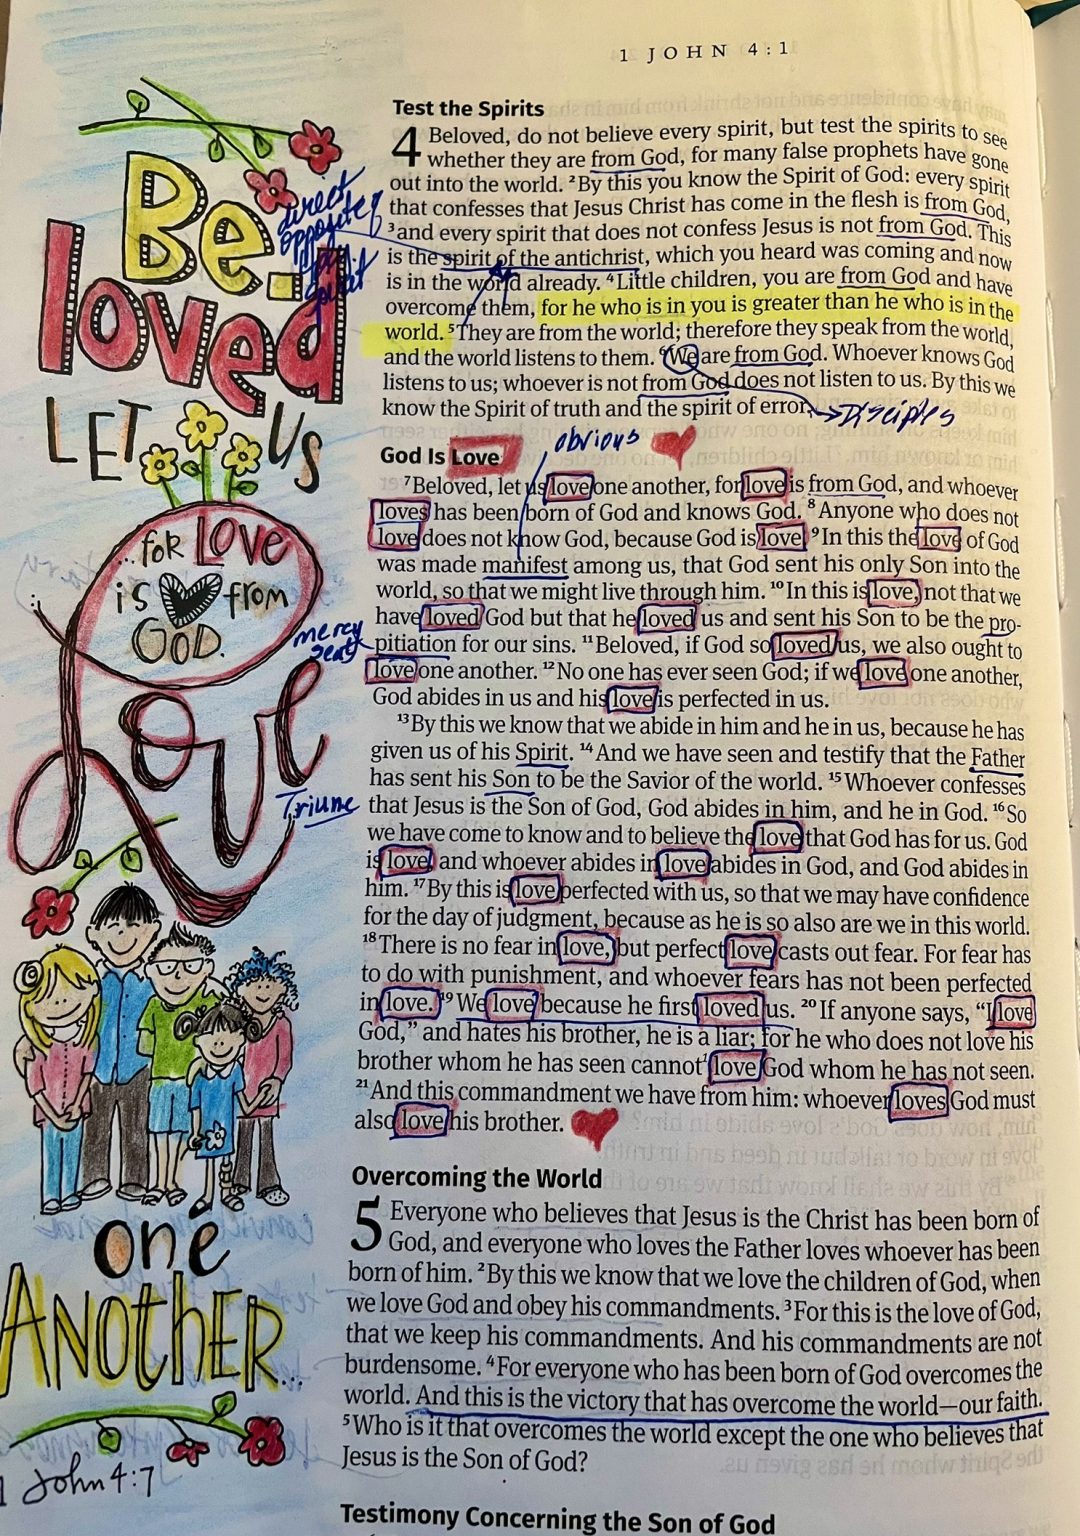 1 JOHN 4:1
Be-
loved
LET US
...for LOVE
is from
GOD.
Love
one
ANOTHER...
1 John 4:7
direct
opposite
of
spirit
mercy
seat
Triune
obvious
Disciples
Test the Spirits
4 Beloved, do not believe every spirit, but test the spirits to see
whether they are from God, for many false prophets have gone
out into the world. 2 By this you know the Spirit of God: every spirit
that confesses that Jesus Christ has come in the flesh is from God,
3 and every spirit that does not confess Jesus is not from God. This
is the spirit of the antichrist, which you heard was coming and now
is in the world already. 4 Little children, you are from God and have
overcome them, for he who is in you is greater than he who is in the
world. 5 They are from the world; therefore they speak from the world,
and the world listens to them. 6 We are from God. Whoever knows God
listens to us; whoever is not from God does not listen to us. By this we
know the Spirit of truth and the spirit of error.
God Is Love
7 Beloved, let us love one another, for love is from God, and whoever
loves has been born of God and knows God. 8 Anyone who does not
love does not know God, because God is love. 9 In this the love of God
was made manifest among us, that God sent his only Son into the
world, so that we might live through him. 10 In this is love, not that we
have loved God but that he loved us and sent his Son to be the pro-
pitiation for our sins. 11 Beloved, if God so loved us, we also ought to
love one another. 12 No one has ever seen God; if we love one another,
God abides in us and his love is perfected in us.
13 By this we know that we abide in him and he in us, because he has
given us of his Spirit. 14 And we have seen and testify that the Father
has sent his Son to be the Savior of the world. 15 Whoever confesses
that Jesus is the Son of God, God abides in him, and he in God. 16 So
we have come to know and to believe the love that God has for us. God
is love, and whoever abides in love abides in God, and God abides in
him. 17 By this is love perfected with us, so that we may have confidence
for the day of judgment, because as he is so also are we in this world.
18 There is no fear in love, but perfect love casts out fear. For fear has
to do with punishment, and whoever fears has not been perfected
in love. 19 We love because he first loved us. 20 If anyone says, “I love
God,” and hates his brother, he is a liar; for he who does not love his
brother whom he has seen cannot 1 love God whom he has not seen.
21 And this commandment we have from him: whoever loves God must
also love his brother.
Overcoming the World
5 Everyone who believes that Jesus is the Christ has been born of
God, and everyone who loves the Father loves whoever has been
born of him. 2 By this we know that we love the children of God, when
we love God and obey his commandments. 3 For this is the love of God,
that we keep his commandments. And his commandments are not
burdensome. 4 For everyone who has been born of God overcomes the
world. And this is the victory that has overcome the world—our faith.
5 Who is it that overcomes the world except the one who believes that
Jesus is the Son of God?
Testimony Concerning the Son of God